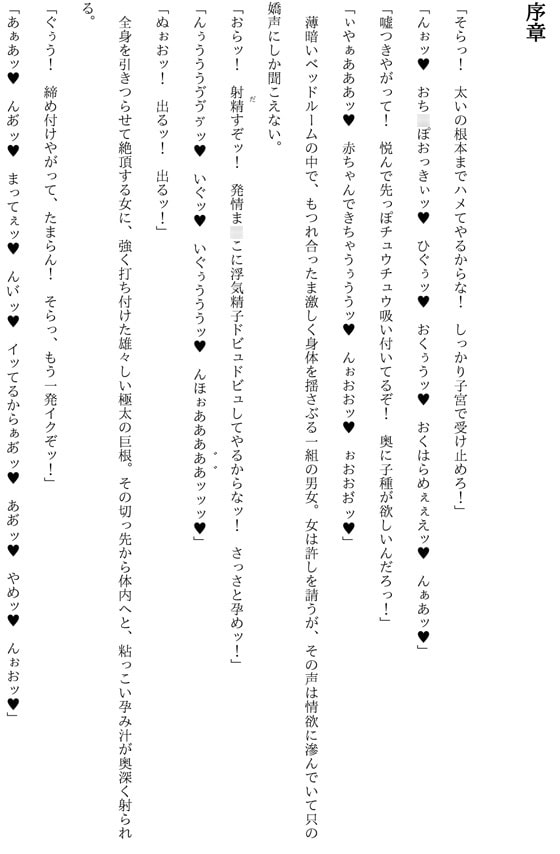 序章
「そらっ！　太いの根本までハメてやるからな！　しっかり子宮で受け止めろ！」
「んぉッ♥　おちぽおっきぃッ♥　ひぐぅッ♥　おくぅうッ♥　おくはらめぇぇえッ♥　んぁあッ♥」
「嘘つきやがって！　悦んで先っぽチュウチュウ吸い付いてるぞ！　奥に子種が欲しいんだろっ！」
「ぃやぁあああッ♥　赤ちゃんできちゃうぅううッ♥　んぉおおッ♥　ぉおおおッ♥」
　薄暗いベッドルームの中で、もつれ合ったま激しく身体を揺さぶる一組の男女。女は許しを請うが、その声は情欲に滲んでいて只の
嬌声にしか聞こえない。
だ
「おらッ！　射精すぞッ！　発情まこに浮気精子ドビュドビュしてやるからなッ！　さっさと孕めッ！」
「んぅうううゔゔゔッ♥　いぐッ♥　いぐぅうううッ♥　んほぉああああ゛あ゛ッッッ♥」
「ぬぉおッ！　出るッ！　出るッ！」
　全身を引きつらせて絶頂する女に、強く打ち付けた雄々しい極太の巨根。その切っ先から体内へと、粘っこい孕み汁が奥深く射られ
る。
「ぐぅう！　締め付けやがって、たまらん！　そらっ、もう一発イクぞッ！」
「あぁあッ♥　んあ゛ッ♥　まってぇッ♥　んい゛ッ♥　イッてるからぁあ゛ッ♥　ああ゛ッ♥　やめッ♥　んぉおッ♥」